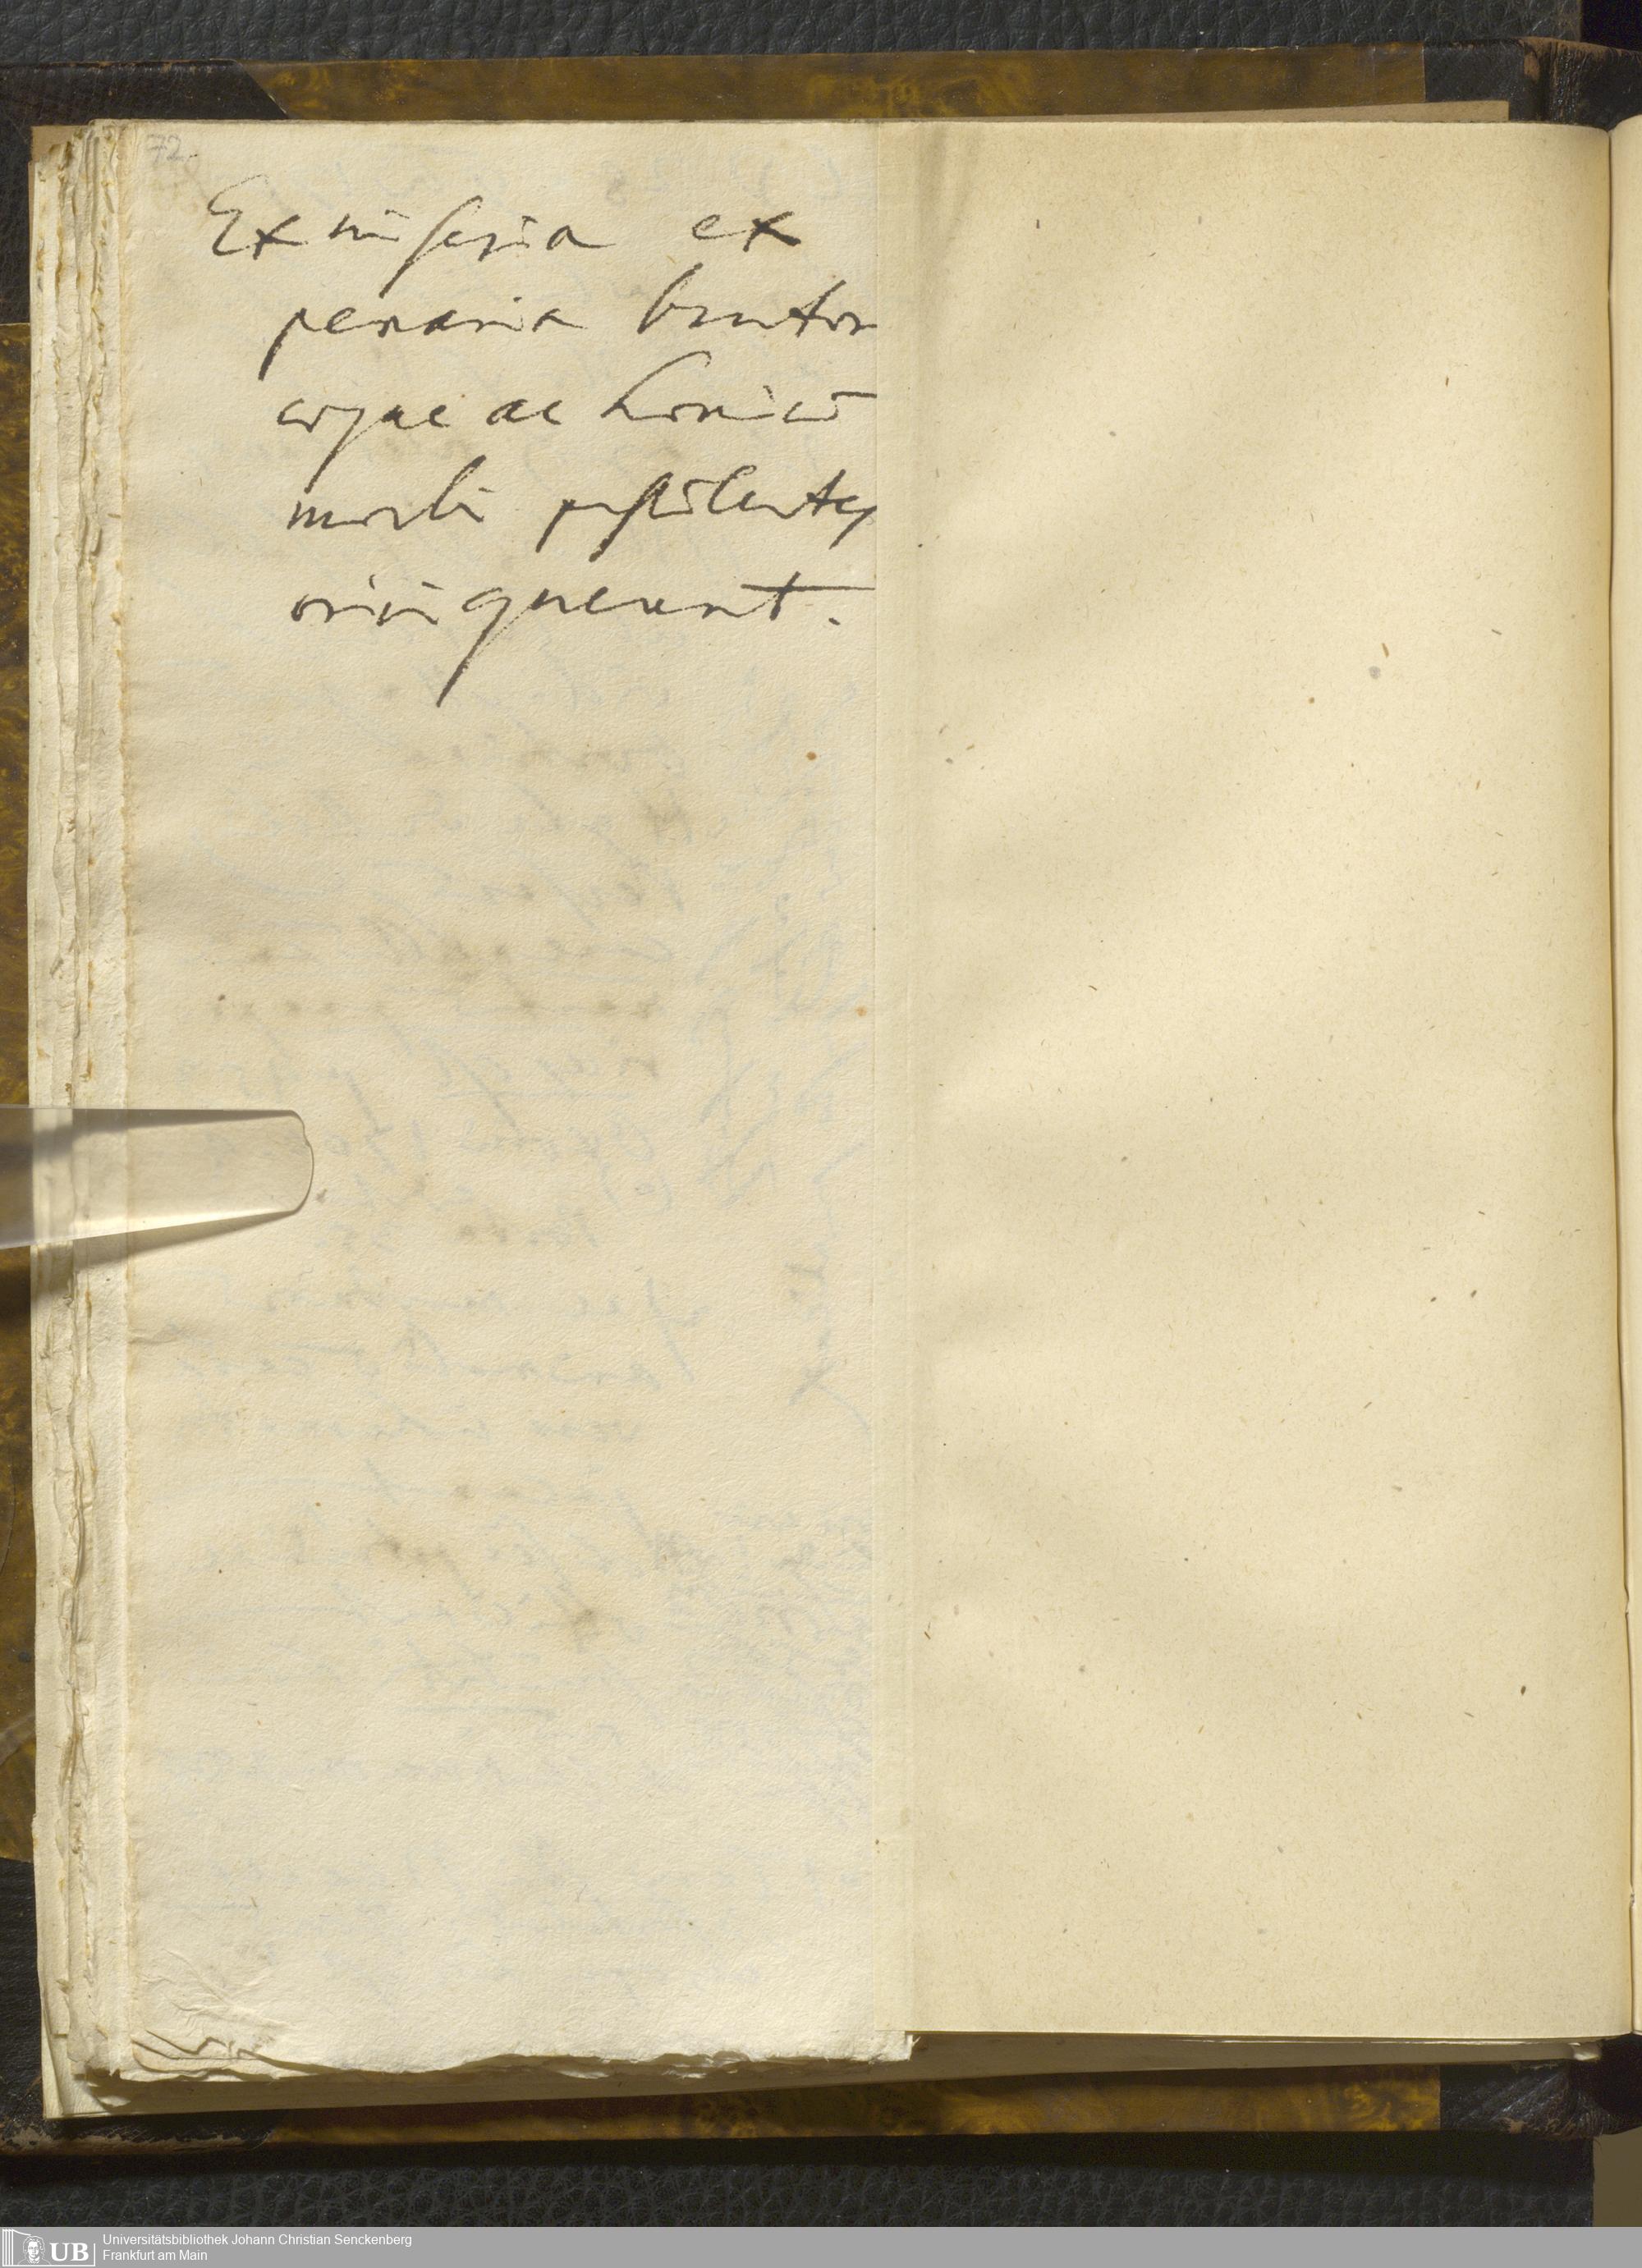 72.
Ex miseria ex
penaria brutor
ac homiū
morbi pestilentes
oriri queunt.
UB Universitätsbibliothek Johann Christian Senckenberg
Frankfurt am Main